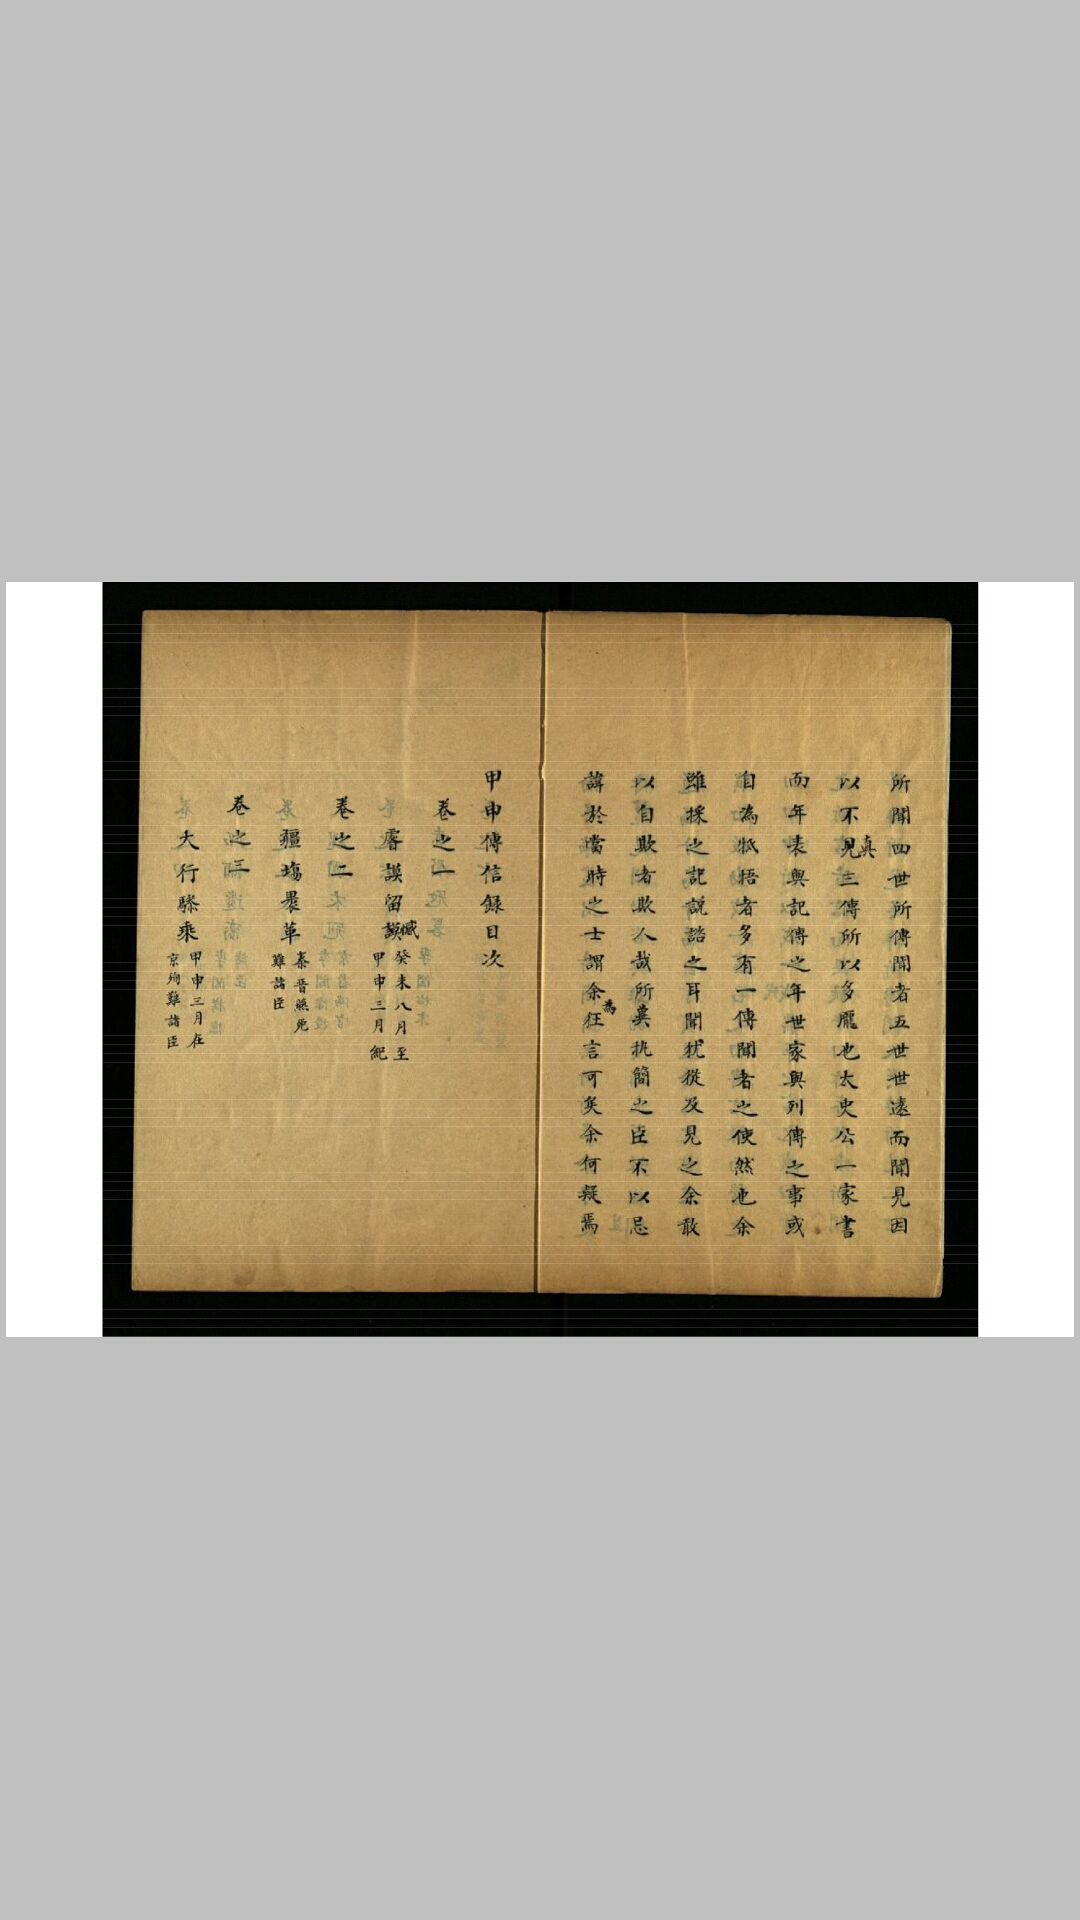 所聞四世所傳聞者五世世遠而聞見因
以不見真三傳所以多龎也太史公一家書
而年表與記傳之年世家與列傳之事或
自為牴牾者多有一傳聞者之使然也余
雖採之記說諮之耳聞犹從及見之余敢
以自欺者欺人哉所兾执簡之臣不以忌
諱於當時之士謂余為狂言可矣余何疑焉
甲申傳信録目次
卷之一
睿謨留憾
癸未八月至
甲申三月紀
卷之二
疆塲褁革
秦晋燕死
難諸臣
卷之三
大行驂乘
甲申三月在
京殉難諸臣